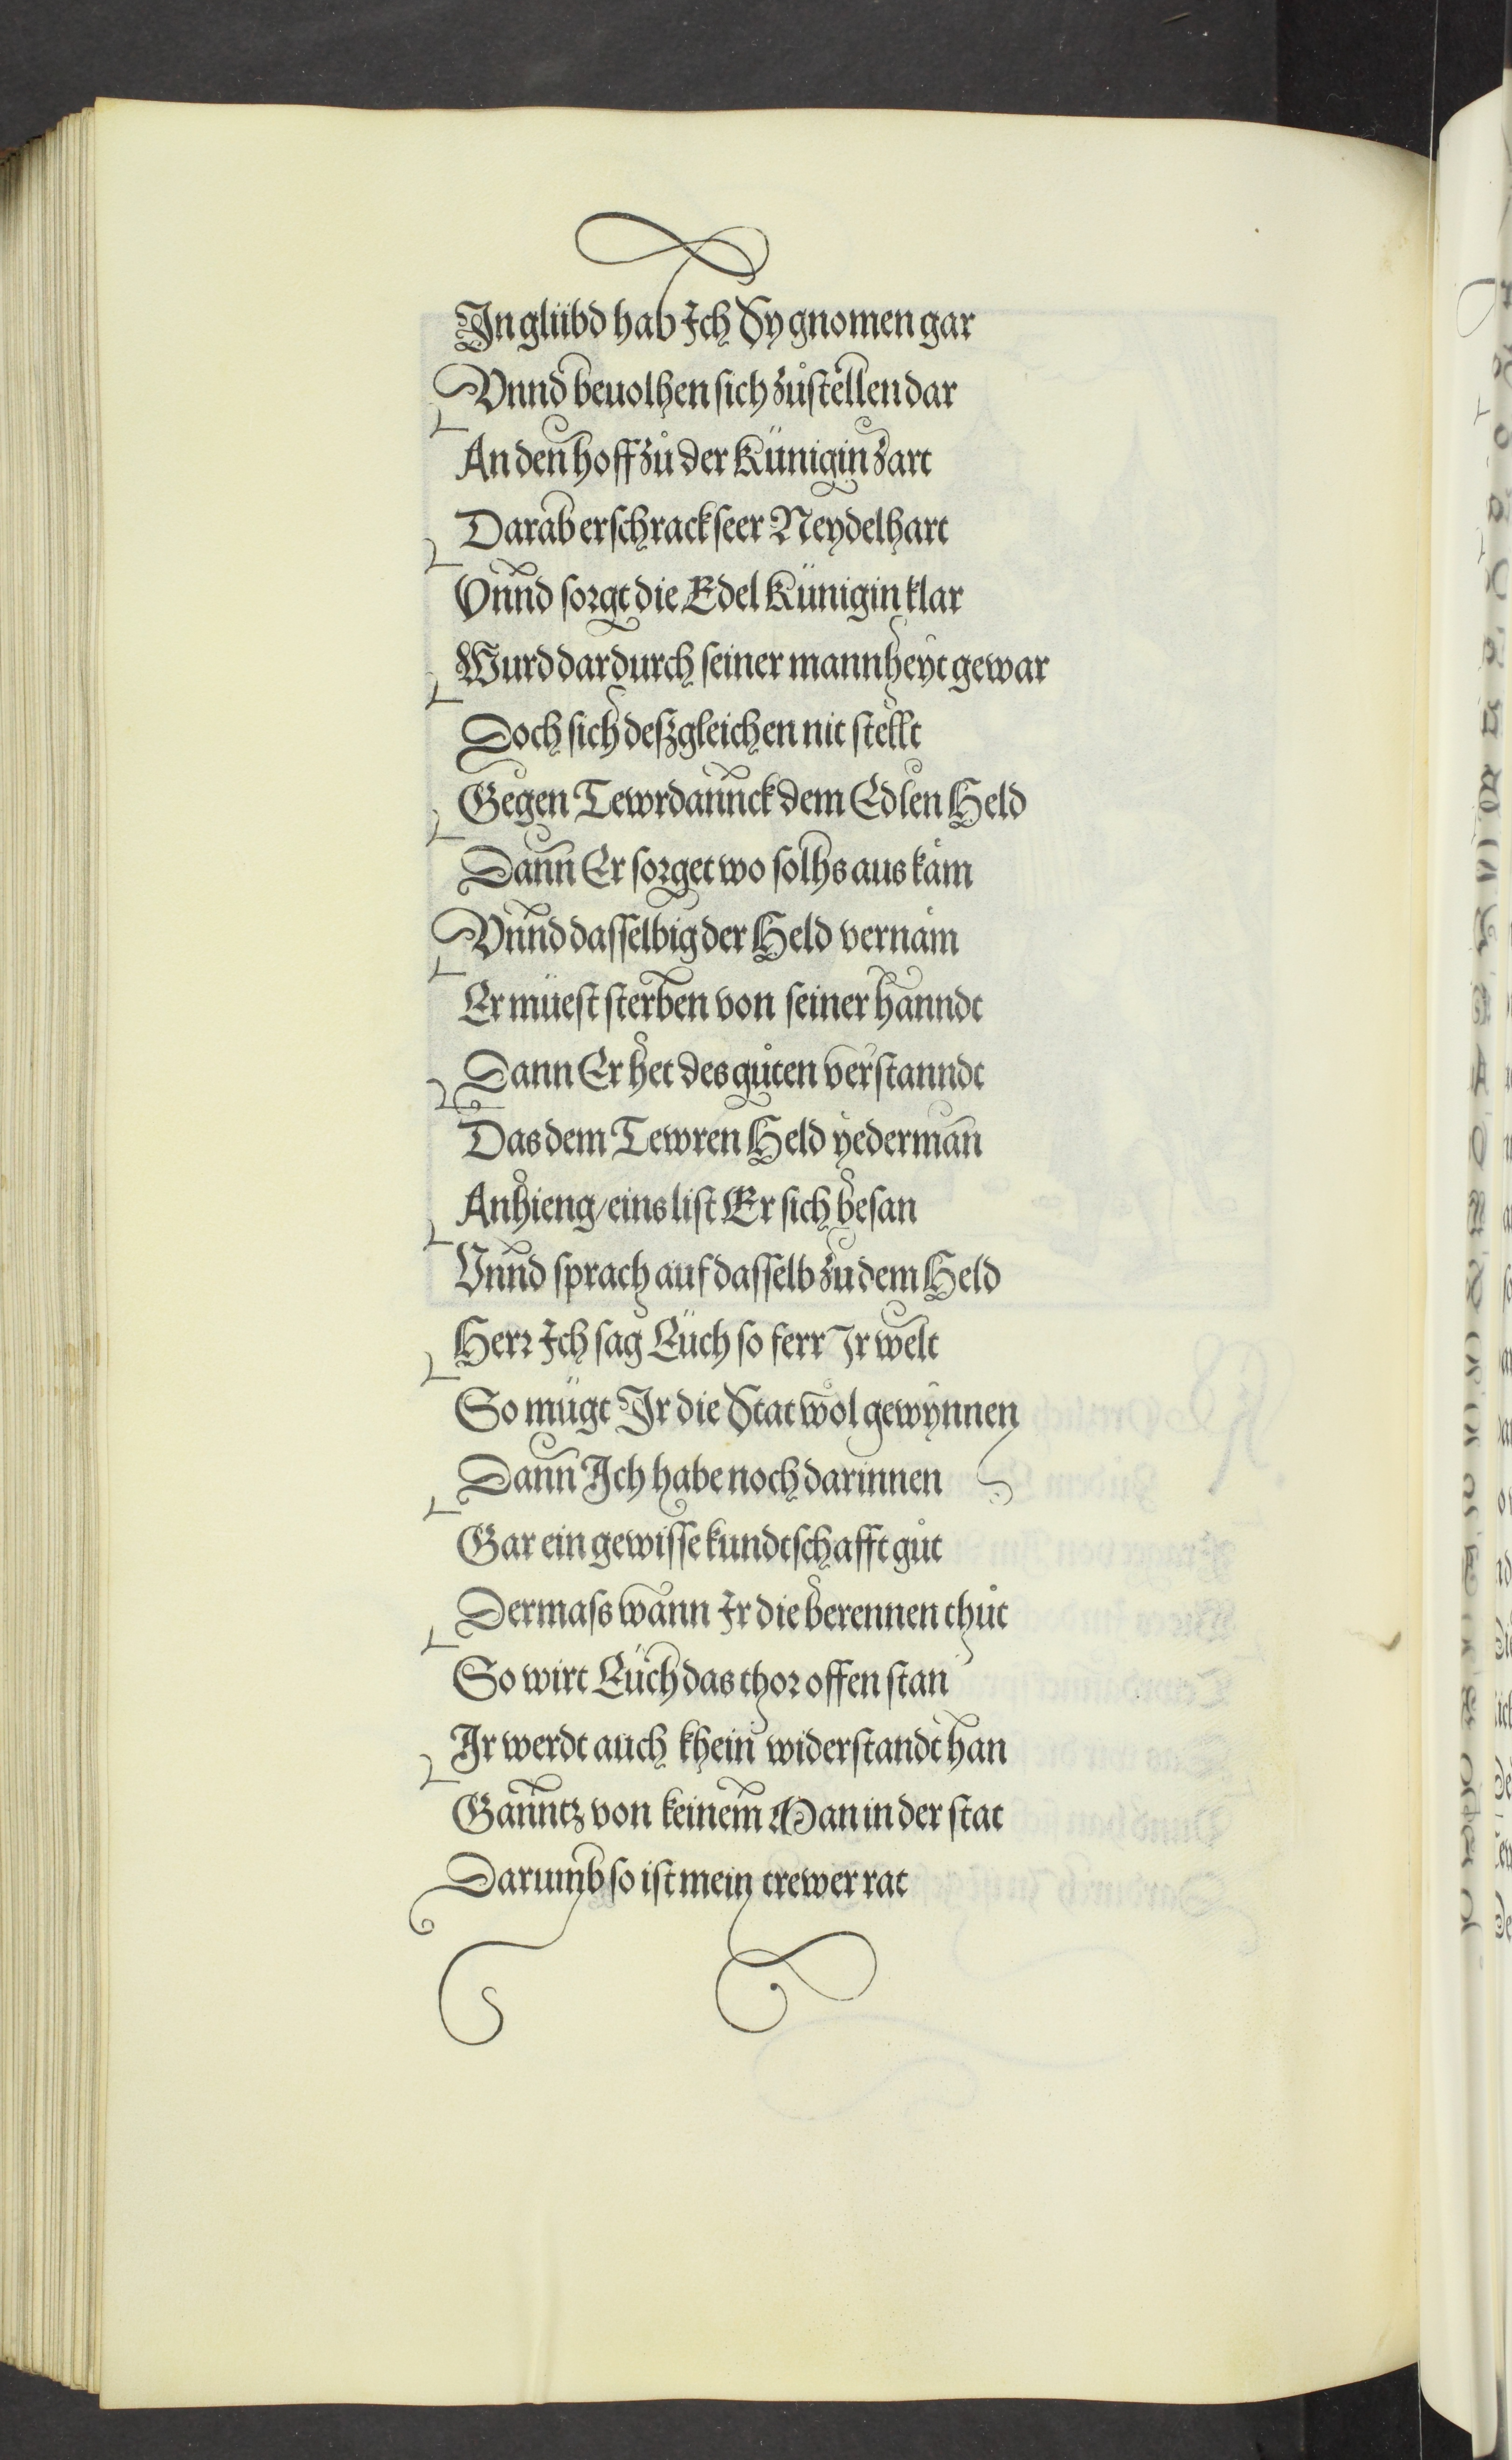 In glübd hab Ich Sy gnomen gar
Vnnd beuolhen sich zůstellen dar
An den hoff zů der Künigin zart
Darab erschrack seer Neydelhart
Vnnd sorgt die Edel Künigin klar
Wurd dardurch seiner mannheyt gewar
Doch sich deszgleichen nit stellt
Gegen Tewrdannck dem Edlen Held
Dann Er sorget wo solhs aus kåm
Vnnd dasselbig der Held vernåm
Er müest sterben von seiner hanndt
Dann Er het des gůten verstanndt
Das dem Tewren Held yederman
Anhieng/eins list Er sich besan
Vnnd sprach auf dasselb zu dem Held
Herr Ich sag Eüch so ferr Ir welt
So mügt Ir die Stat wol gewynnen
Dann Ich habe noch darinnen
Gar ein gewisse kundtschafft gůt
Dermass wann Ir die berennen thůt
So wirt Eüch das thor offen stan
Ir werdt auch khein widerstandt han
Ganntz von keinem Man in der stat
Darumb so ist mein trewer rat